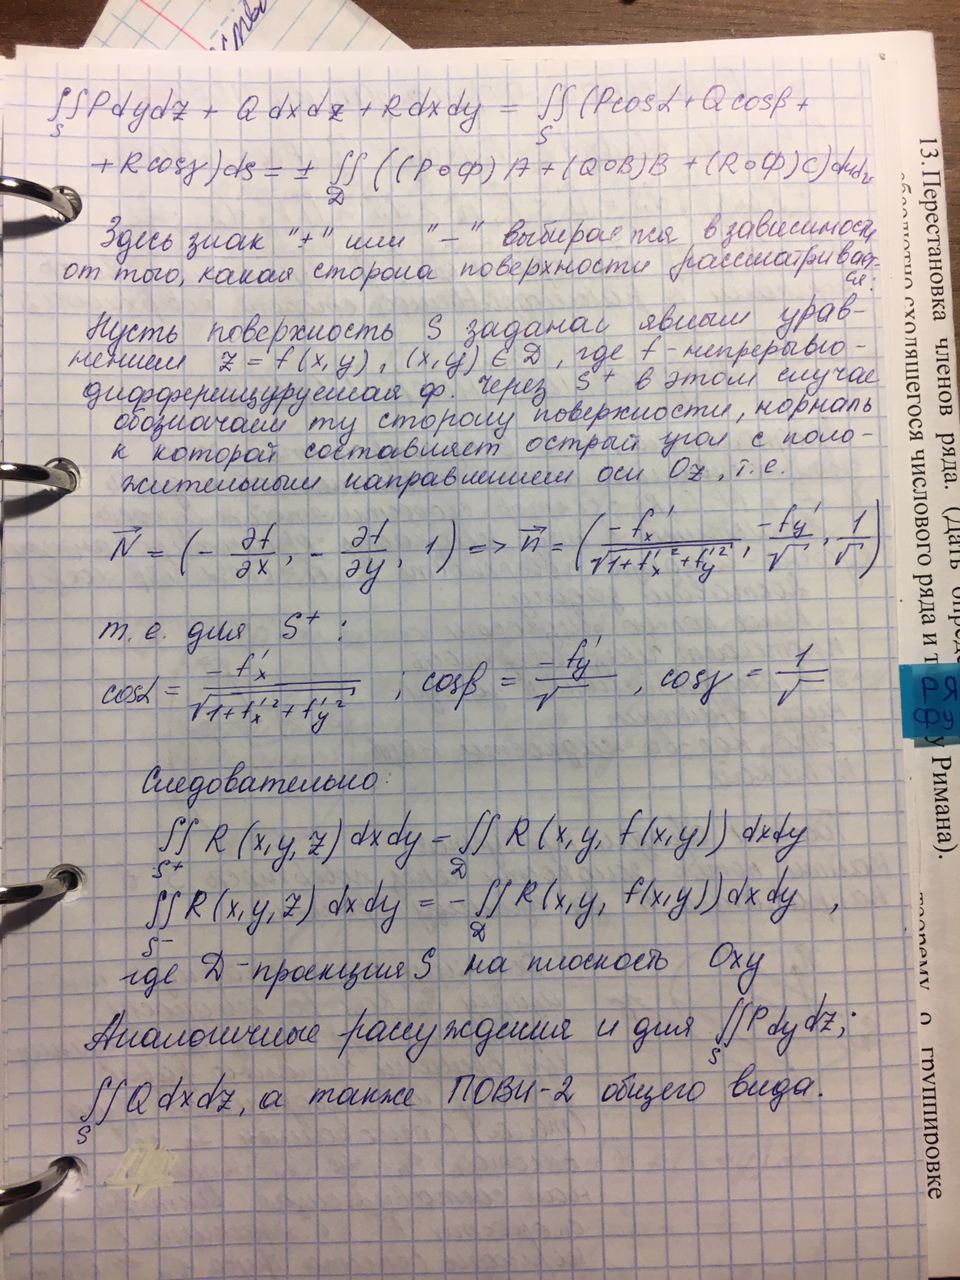 ∬_S Pdydz + Q dxdz + R dxdy = ∬_S (Pcosα + Q cosβ +
+ R cosγ) ds = ± ∬_D ((P∘Φ) A + (Q∘B) B + (R∘Φ) C) dudv
Здесь знак "+" или "−" выбирается в зависимости
от того, какая сторона поверхности рассматривает-
ся:
Пусть поверхность S задана явным урав-
нением z = f(x,y), (x,y) ∈ D, где f - непрерывно-
дифференцируемая ф. Через S⁺ в этом случае
обозначаем ту сторону поверхности, нормаль
к которой составляет острый угол с поло-
жительным направлением оси Oz, т.е.
N⃗ = (− ∂f/∂x, − ∂f/∂y, 1) => n⃗ = (−f'x/√(1+f'x²+f'y²), −f'y/√, 1/√)
т.е. для S⁺:
cosα = −f'x/√(1+f'x²+f'y²) ; cosβ = −f'y/√ , cosγ = 1/√
Следовательно:
∬_S⁺ R (x,y,z) dxdy = ∬_D R (x,y, f(x,y)) dxdy
∬_S⁻ R(x,y,z) dxdy = −∬_D R(x,y, f(x,y)) dxdy ,
где D - проекция S на плоскость Oxy
Аналогичные рассуждения и для ∬_S Pdydz;
∬_S Q dxdz, а также ПОВИ-2 общего вида.
13. Перестановка членов ряда. (Дать опреде
сходящегося числового ряда и т
у Римана).
теорему о группировке